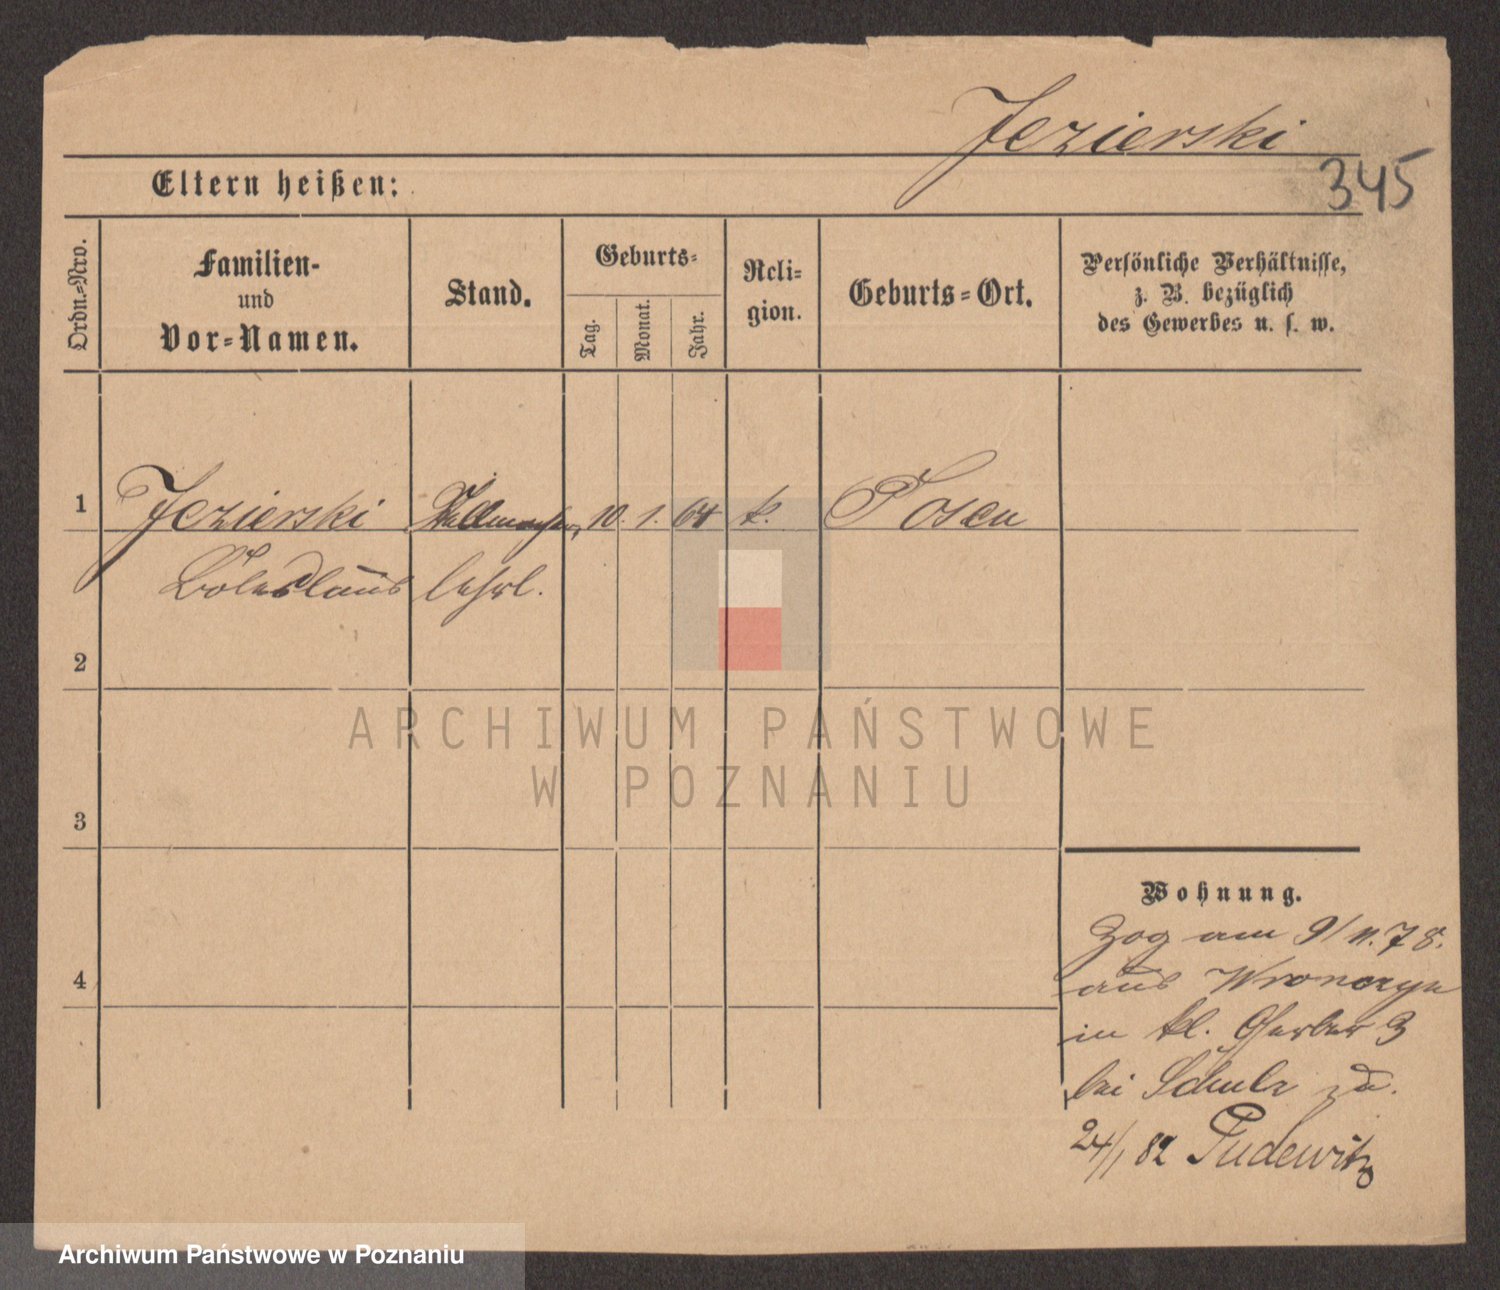 Jezierski
345
Eltern heißen:
Ordn.-Nro.
Familien-
und
Vor-Namen.
Stand.
Geburts-
Tag.
Monat.
Jahr.
Reli-
gion.
Geburts-Ort.
Persönliche Verhältnisse,
z. B. bezüglich
des Gewerbes u. s. w.
1 Jezierski Stellmacher 10. 1. 64 k. Posen
Boleslaus lehrl.
2
3
4
Wohnung.
Zog am 9/11.78.
aus Wronczyn
in kl. Gerber 3
bei Schulz zu.
24/1 82 Pudewitz
ARCHIWUM PAŃSTWOWE
W POZNANIU
Archiwum Państwowe w Poznaniu